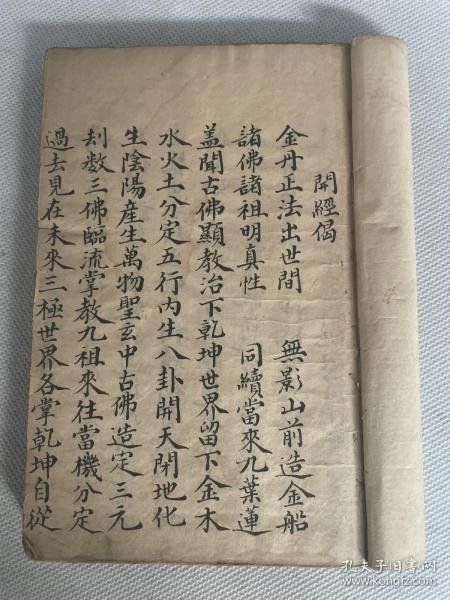 開經偈
金丹正法出世間　無影山前造金船
諸佛諸祖明真性　同續當來九葉蓮
盖聞古佛顯教治下乾坤世界留下金木
水火土分定五行内生八卦開天閉地化
生陰陽產生萬物聖玄中古佛造定三元
刦数三佛臨流掌教九祖來往當機分定
過去見在未來三極世界各掌乾坤自從
孔夫子旧书网
www.kongfz.com